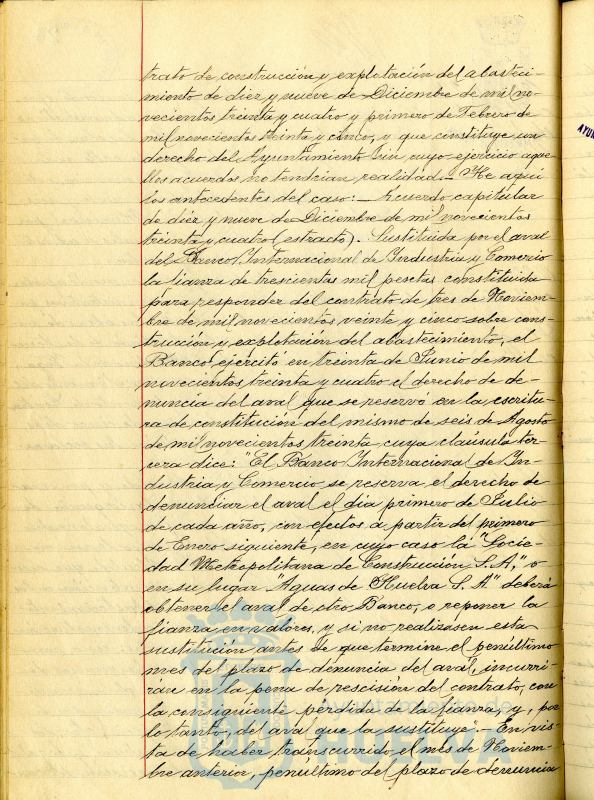 trato de construcción y explotación del abasteci-
miento de diez y nueve de Diciembre de mil no-
vecientos treinta y cuatro y primero de Febrero de
mil novecientos treinta y cinco, y que constituye un
derecho del Ayuntamiento sin cuyo ejercicio aque-
llos acuerdos no tendrian realidad.- He aqui
los antecedentes del caso:- Acuerdo capitular
de diez y nueve de Diciembre de mil novecientos
treinta y cuatro (estracto). Sustituida por el aval
del Banco Internacional de Industria y Comercio
la fianza de trescientas mil pesetas constituida
para responder del contrato de tres de Noviem-
bre de mil novecientos veinte y cinco sobre cons-
trucción y explotación del abastecimiento, el
Banco ejercitó en treinta de Junio de mil
novecientos treinta y cuatro el derecho de de-
nuncia del aval que se reservó en la escritu-
ra de constitución del mismo de seis de Agosto
de mil novecientos treinta, cuya claúsula ter-
cera dice: "El Banco Internacional de In-
dustria y Comercio se reserva el derecho de
denunciar el aval el día primero de Julio
de cada año, con efectos a partir del primero
de Enero siguiente, en cuyo caso la "Socie-
dad Metropolitana de Construcción S.A," o
en su lugar "Aguas de Huelva S.A" deberá
obtener el aval de otro Banco, o reponer la
fianza en valores, y si no realizasen esta
sustitución antes de que termine el penúltimo
mes del plazo de denuncia del aval, incurri-
rán en la pena de rescisión del contrato, con
la consiguiente pérdida de la fianza, y, por
lo tanto, del aval que la sustituye".- En vis-
ta de haber transcurrido el mes de Noviem-
bre anterior, penúltimo del plazo de denuncia
AYUN
HUELVA